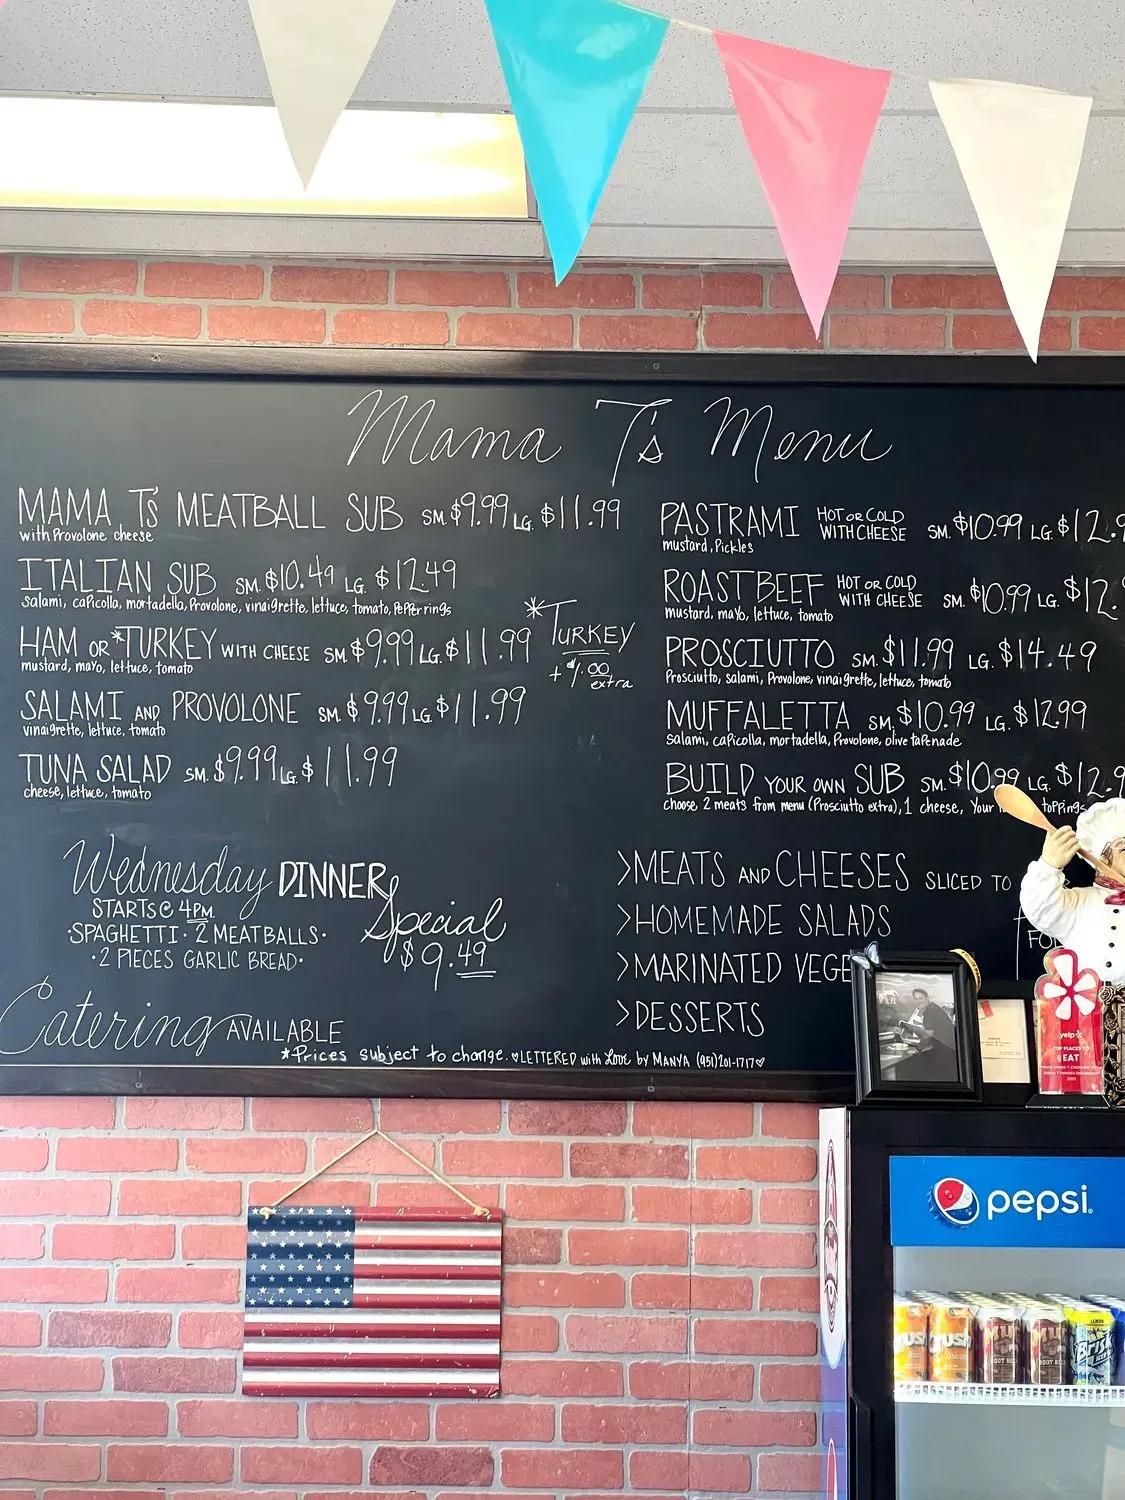 Mama T's Menu
MAMA T's MEATBALL SUB SM. $9.99 LG. $11.99
with Provolone cheese
ITALIAN SUB SM. $10.49 LG. $12.49
salami, capicolla, mortadella, Provolone, vinaigrette, lettuce, tomato, PePPer rings
HAM OR *TURKEY WITH CHEESE SM. $9.99 LG. $11.99
mustard, mayo, lettuce, tomato
*TURKEY
+ $1.00
extra
SALAMI AND PROVOLONE SM. $9.99 LG. $11.99
vinaigrette, lettuce, tomato
TUNA SALAD SM. $9.99 LG. $11.99
cheese, lettuce, tomato
PASTRAMI HOT OR COLD WITH CHEESE SM. $10.99 LG. $12.9
mustard, Pickles
ROAST BEEF HOT OR COLD WITH CHEESE SM. $10.99 LG. $12.
mustard, mayo, lettuce, tomato
PROSCIUTTO SM. $11.99 LG. $14.49
Prosciutto, salami, Provolone, vinaigrette, lettuce, tomato
MUFFALETTA SM. $10.99 LG. $12.99
salami, capicolla, mortadella, Provolone, olive taPenade
BUILD YOUR OWN SUB SM. $10.99 LG. $12.9
choose 2 meats from menu (Prosciutto extra), 1 cheese, Your toPPings
Wednesday DINNER
Special
STARTS @ 4PM
·SPAGHETTI· 2 MEATBALLS·
·2 PIECES GARLIC BREAD·
$9.49
Catering AVAILABLE
>MEATS AND CHEESES SLICED TO
>HOMEMADE SALADS
>MARINATED VEGE
>DESSERTS
*Prices subject to change. ♡LETTERED with Love by MANYA (951)201-1717♡
yelp
TOP PLACES TO
EAT
pepsi
CRUSH
MUG
ROOT BEER
Brisk